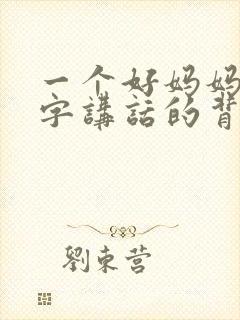 一个好妈妈
字講話的背
劉東营